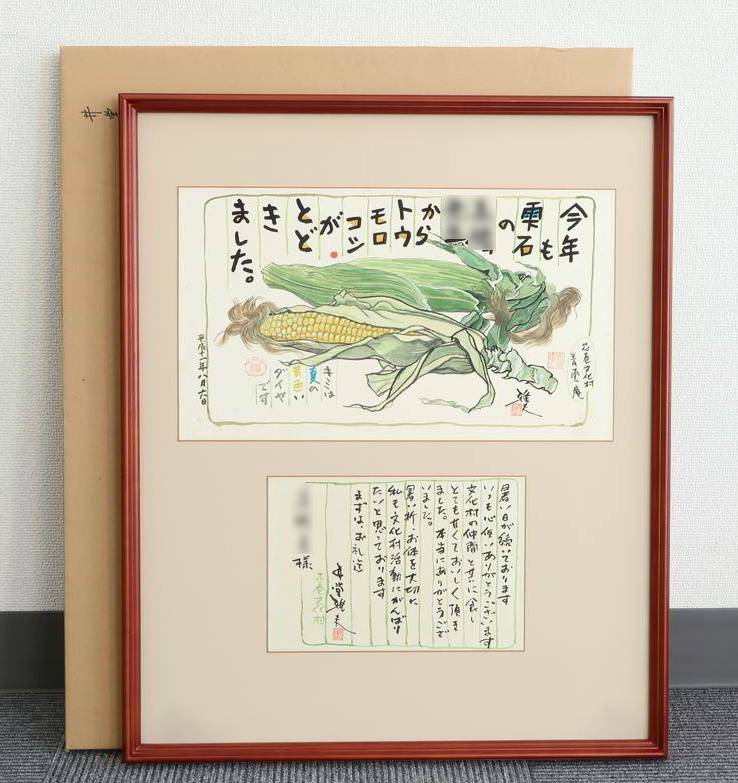 今年も
雫石
の
から
トウ
モロ
コシ
が
とど
き
ました。
キミは
夏の
黄色い
ダイヤ
です
平成十一年八月六日
雅夫
暑い日が続いております
いつも心使いありがとうございます
文化村の仲間と共に食し
とても甘くておいしく頂き
ました。本当にありがとうござ
いました。
暑い折、お体を大切に
私も文化村活動にがんばり
たいと思っております
まずは、お礼迄
井堂雅夫
様
井堂